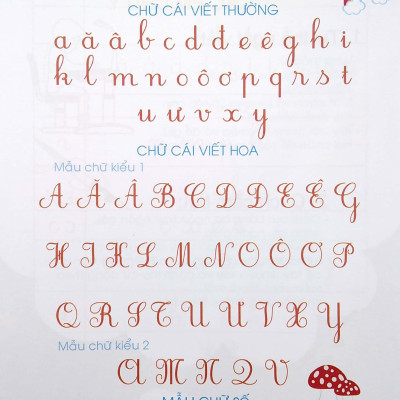 CHỮ CÁI VIẾT THƯỜNG
a ă â b c d đ e ê g h i
k l m n o ô ơ p q r s t
u ư v x y
CHỮ CÁI VIẾT HOA
Mẫu chữ kiểu 1
A Ă Â B C D Đ E Ê G
H I K L M N O Ô Ơ P
Q R S T U Ư V X Y
Mẫu chữ kiểu 2
A M N Q V
MẪU CHỮ SỐ